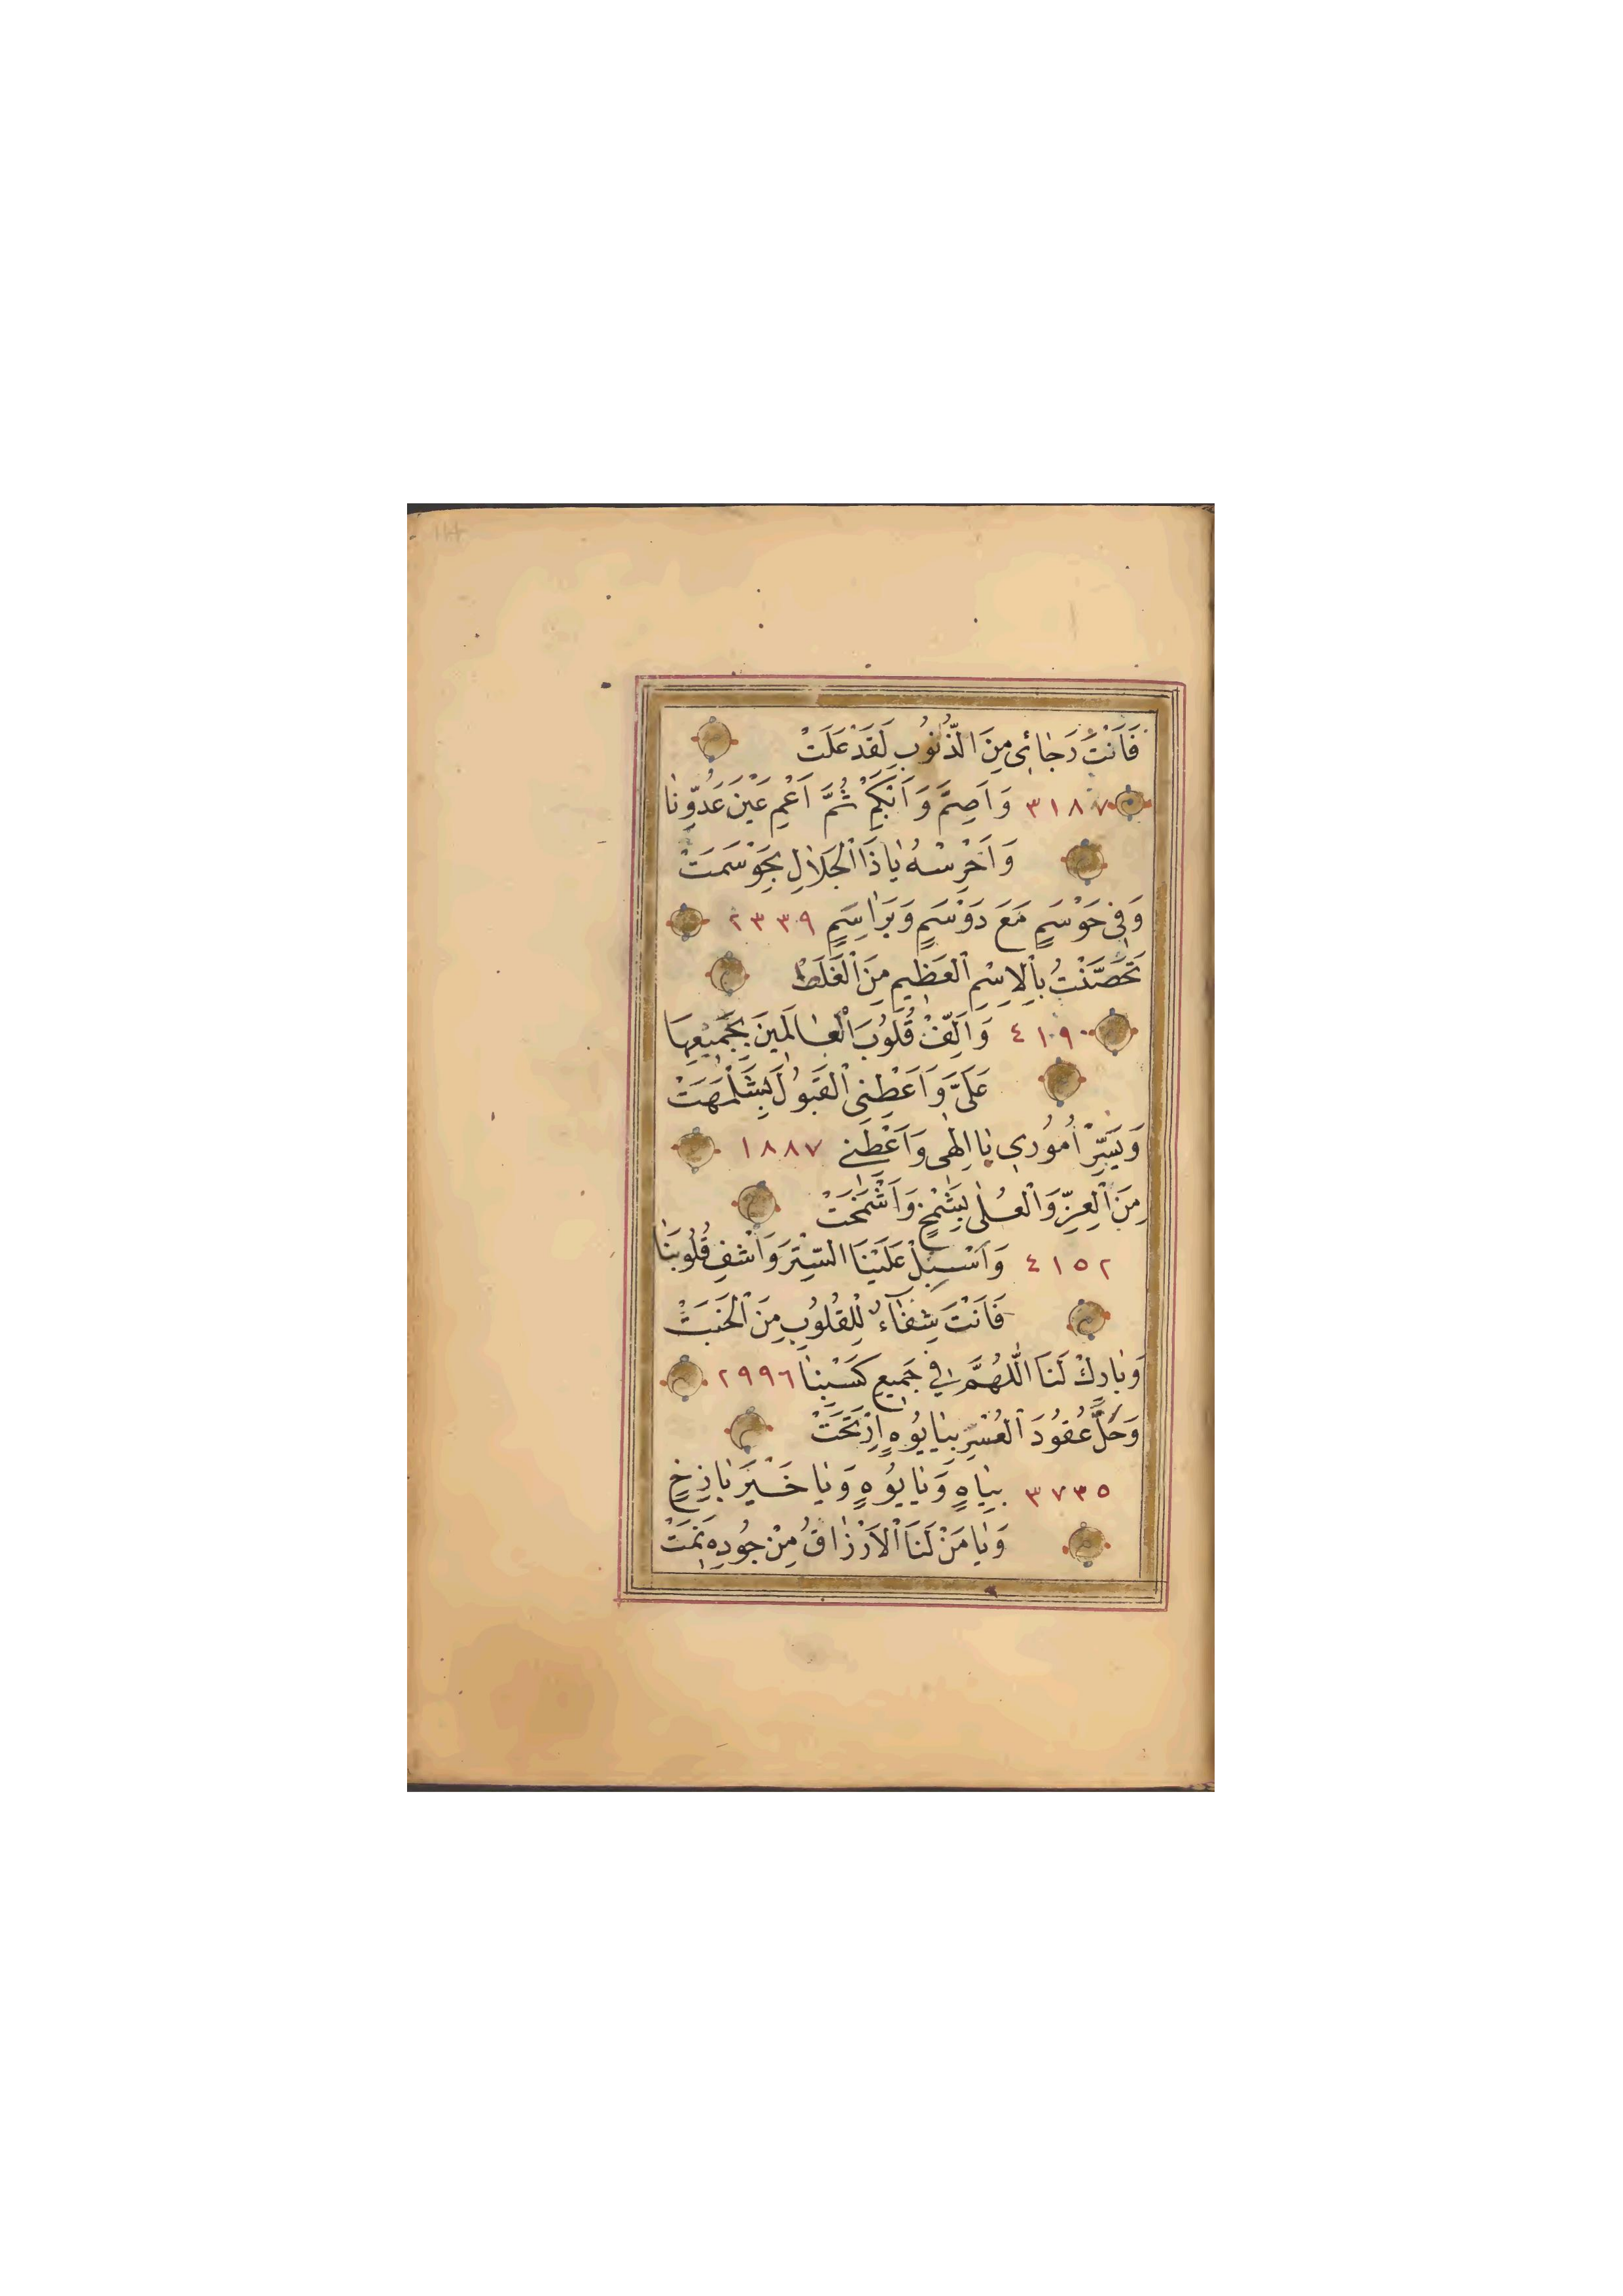 فَاَنْتَ رَجٰائِى مِنَ الذُّنُوُبِ لَقَدْ عَلَتْ
٣١٨٧ وَ اَصِمَّ وَ اَبْكِمْ ثُمَّ اَعْمِ عَيْنَ عَدُوِّنٰا
وَ اَخْرِسْهُ يٰا ذَا الْجَلاٰلِ بِحَوْسَمَتْ
وَفِى حَوْسَمٍ مَعَ دَوْسَمٍ وَبَرٰاسِمٍ ٢٣٣٩
تَحَصَّنْتُ بِاْلاِسْمِ الْعَظِيمِ مِنَ الْغَلَطْ
٤١٩٠ وَ اَلِّفْ قُلُوُبَ الْعٰالَمِينَ بِجَمْيِعِهٰا
عَلَىَّ وَ اَعْطِنِى الْقَبُوُلَ بِشَلْمَهَتْ
وَ يَسِّرْ اُمُوُرِى يٰا اِلٰهِى وَ اَعْطِنِى ١٨٨٧
مِنَ الْعِزِّ وَ الْعُلٰى بِشَمْخٍ وَ اَشْمَخَتْ
٤١٥٢ وَ اَسْبِلْ عَلَيْنَا السِّتْرَ وَ اشْفِ قُلُوُبَنٰا
فَاَنْتَ شِفٰآءٌ لِلْقُلُوُبِ مِنَ الْخَبَثْ
وَ بٰارِكْ لَنَا اللّٰهُمَّ فِى جَمِيعِ كَسْبِنٰا ٢٩٩٦
وَ حُلَّ عُقُوُدَ الْعُسْرِ بِيٰا يُوُهٍ اِرْتَحَتْ
٣٧٣٥ بِيٰاهٍ وَ يٰا يُوُهٍ وَ يٰا خَيْرَ بٰاذِخٍ
وَ يٰا مَنْ لَنَا الْاَرْزٰاقُ مِنْ جُوُدِهِ نَمَتْ